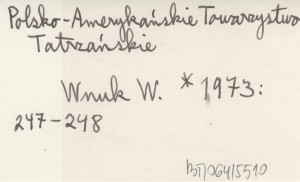 Polsko-Amerykańskie Towarzystwo
Tatrzańskie
Wnuk W. * 1973:
247-248
BTJ06415510